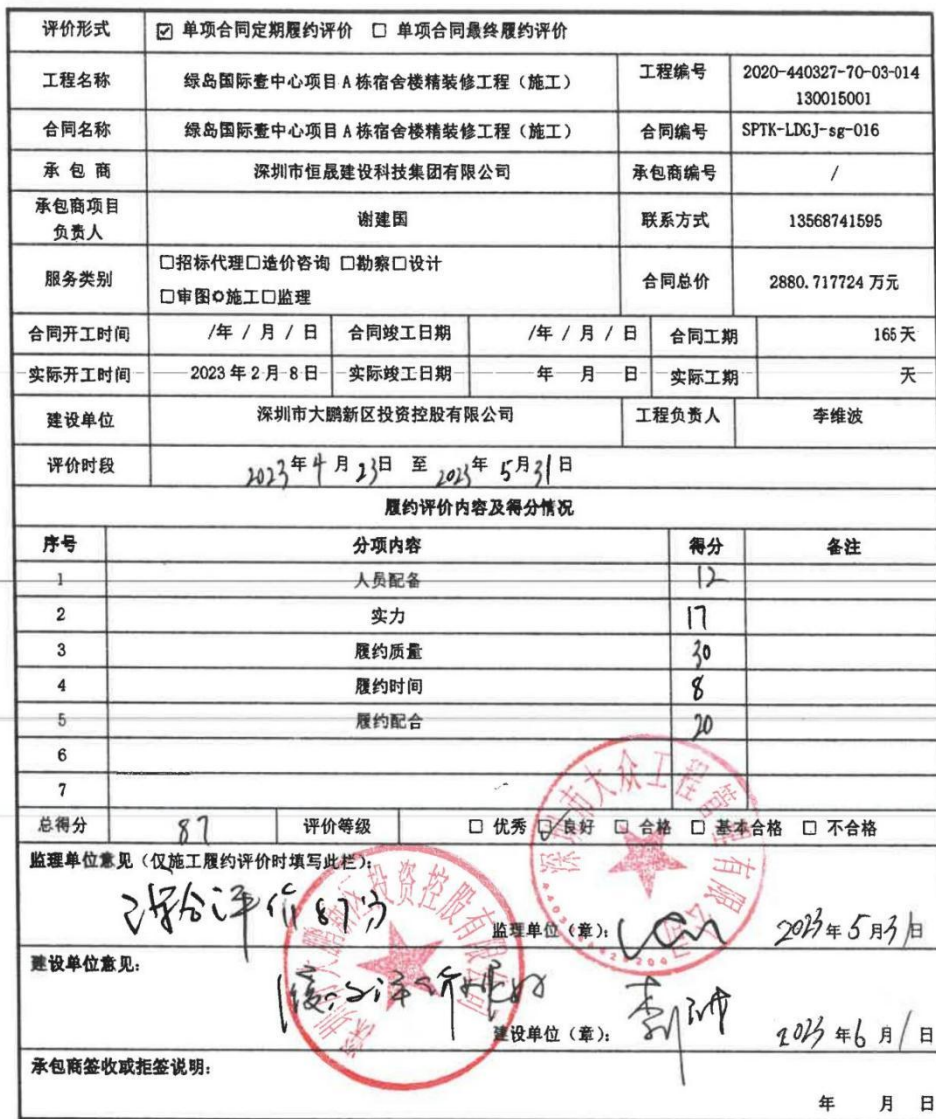 评价形式 ☑ 单项合同定期履约评价 □ 单项合同最终履约评价
工程名称 绿岛国际壹中心项目A栋宿舍楼精装修工程（施工） 工程编号 2020-440327-70-03-014
130015001
合同名称 绿岛国际壹中心项目A栋宿舍楼精装修工程（施工） 合同编号 SPTK-LDGJ-sg-016
承包商 深圳市恒晟建设科技集团有限公司 承包商编号 /
承包商项目
负责人 谢建国 联系方式 13568741595
服务类别 □招标代理□造价咨询 □勘察□设计
□审图✪施工□监理 合同总价 2880.717724 万元
合同开工时间 /年 / 月 / 日 合同竣工日期 /年 / 月 / 日 合同工期 165天
实际开工时间 2023年2月8日 实际竣工日期 年 月 日 实际工期 天
建设单位 深圳市大鹏新区投资控股有限公司 工程负责人 李维波
评价时段 2023年4月23日 至 2023年5月31日
履约评价内容及得分情况
序号 分项内容 得分 备注
1 人员配备 12
2 实力 17
3 履约质量 30
4 履约时间 8
5 履约配合 20
6
7
总得分 87 评价等级 □ 优秀 ☑ 良好 □ 合格 □ 基本合格 □ 不合格
监理单位意见（仅施工履约评价时填写此栏）：
综合评价87分
监理单位（章）： 2023年5月31日
深圳市大众工程管理有限公司
建设单位意见：
建设单位（章）： 2023年6月1日
深圳市大鹏新区投资控股有限公司
承包商签收或拒签说明：
年 月 日